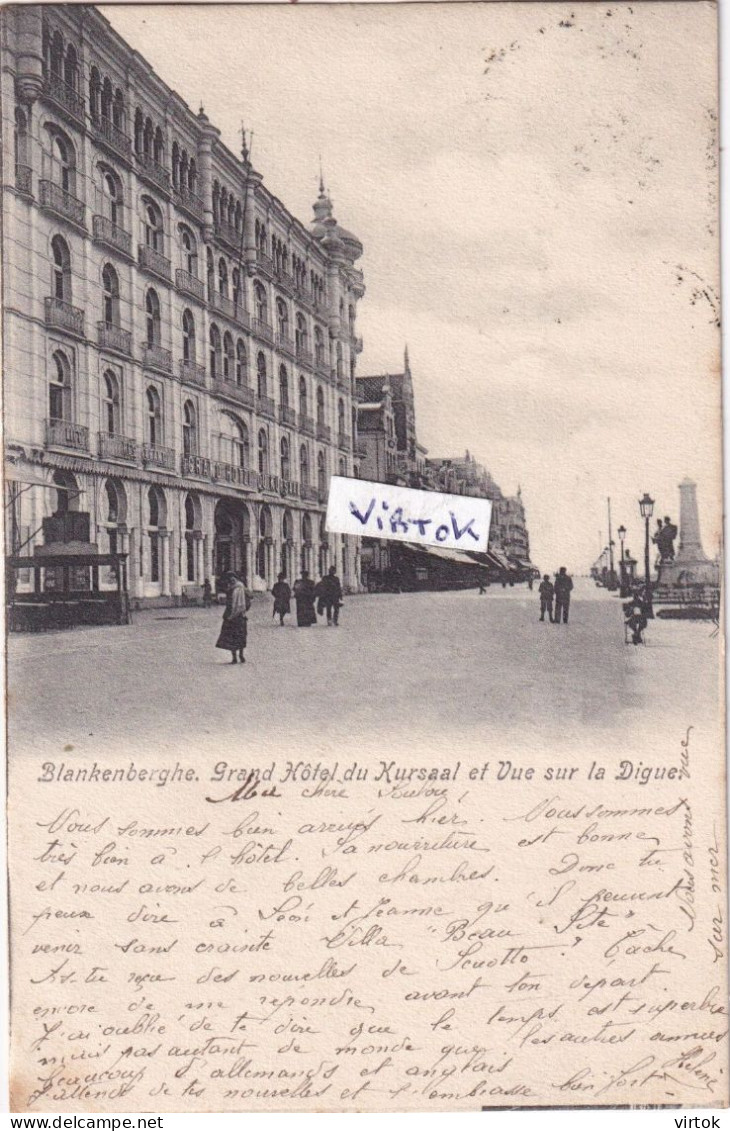 GRAND HOTEL DU KURSAAL
VirtoK
Blankenberghe. Grand Hôtel du Kursaal et Vue sur la Digue.
Ma chère
Nous sommes bien arrivés hier. Nous sommes
très bien à l'hôtel. La nourriture est bonne
et nous avons de belles chambres. Donc tu
peux dire à et Jeanne qu'il peuvent
venir sans crainte Villa "Beau Site"
As-tu reçu des nouvelles de ? Tâche
encore de me répondre avant ton départ.
J'ai oublié de te dire que le temps est superbe
mais pas autant de monde que les autres années
beaucoup d'allemands et anglais
J'attends de tes nouvelles et t'embrasse bien fort
Hélène
Nous avons vue
sur mer